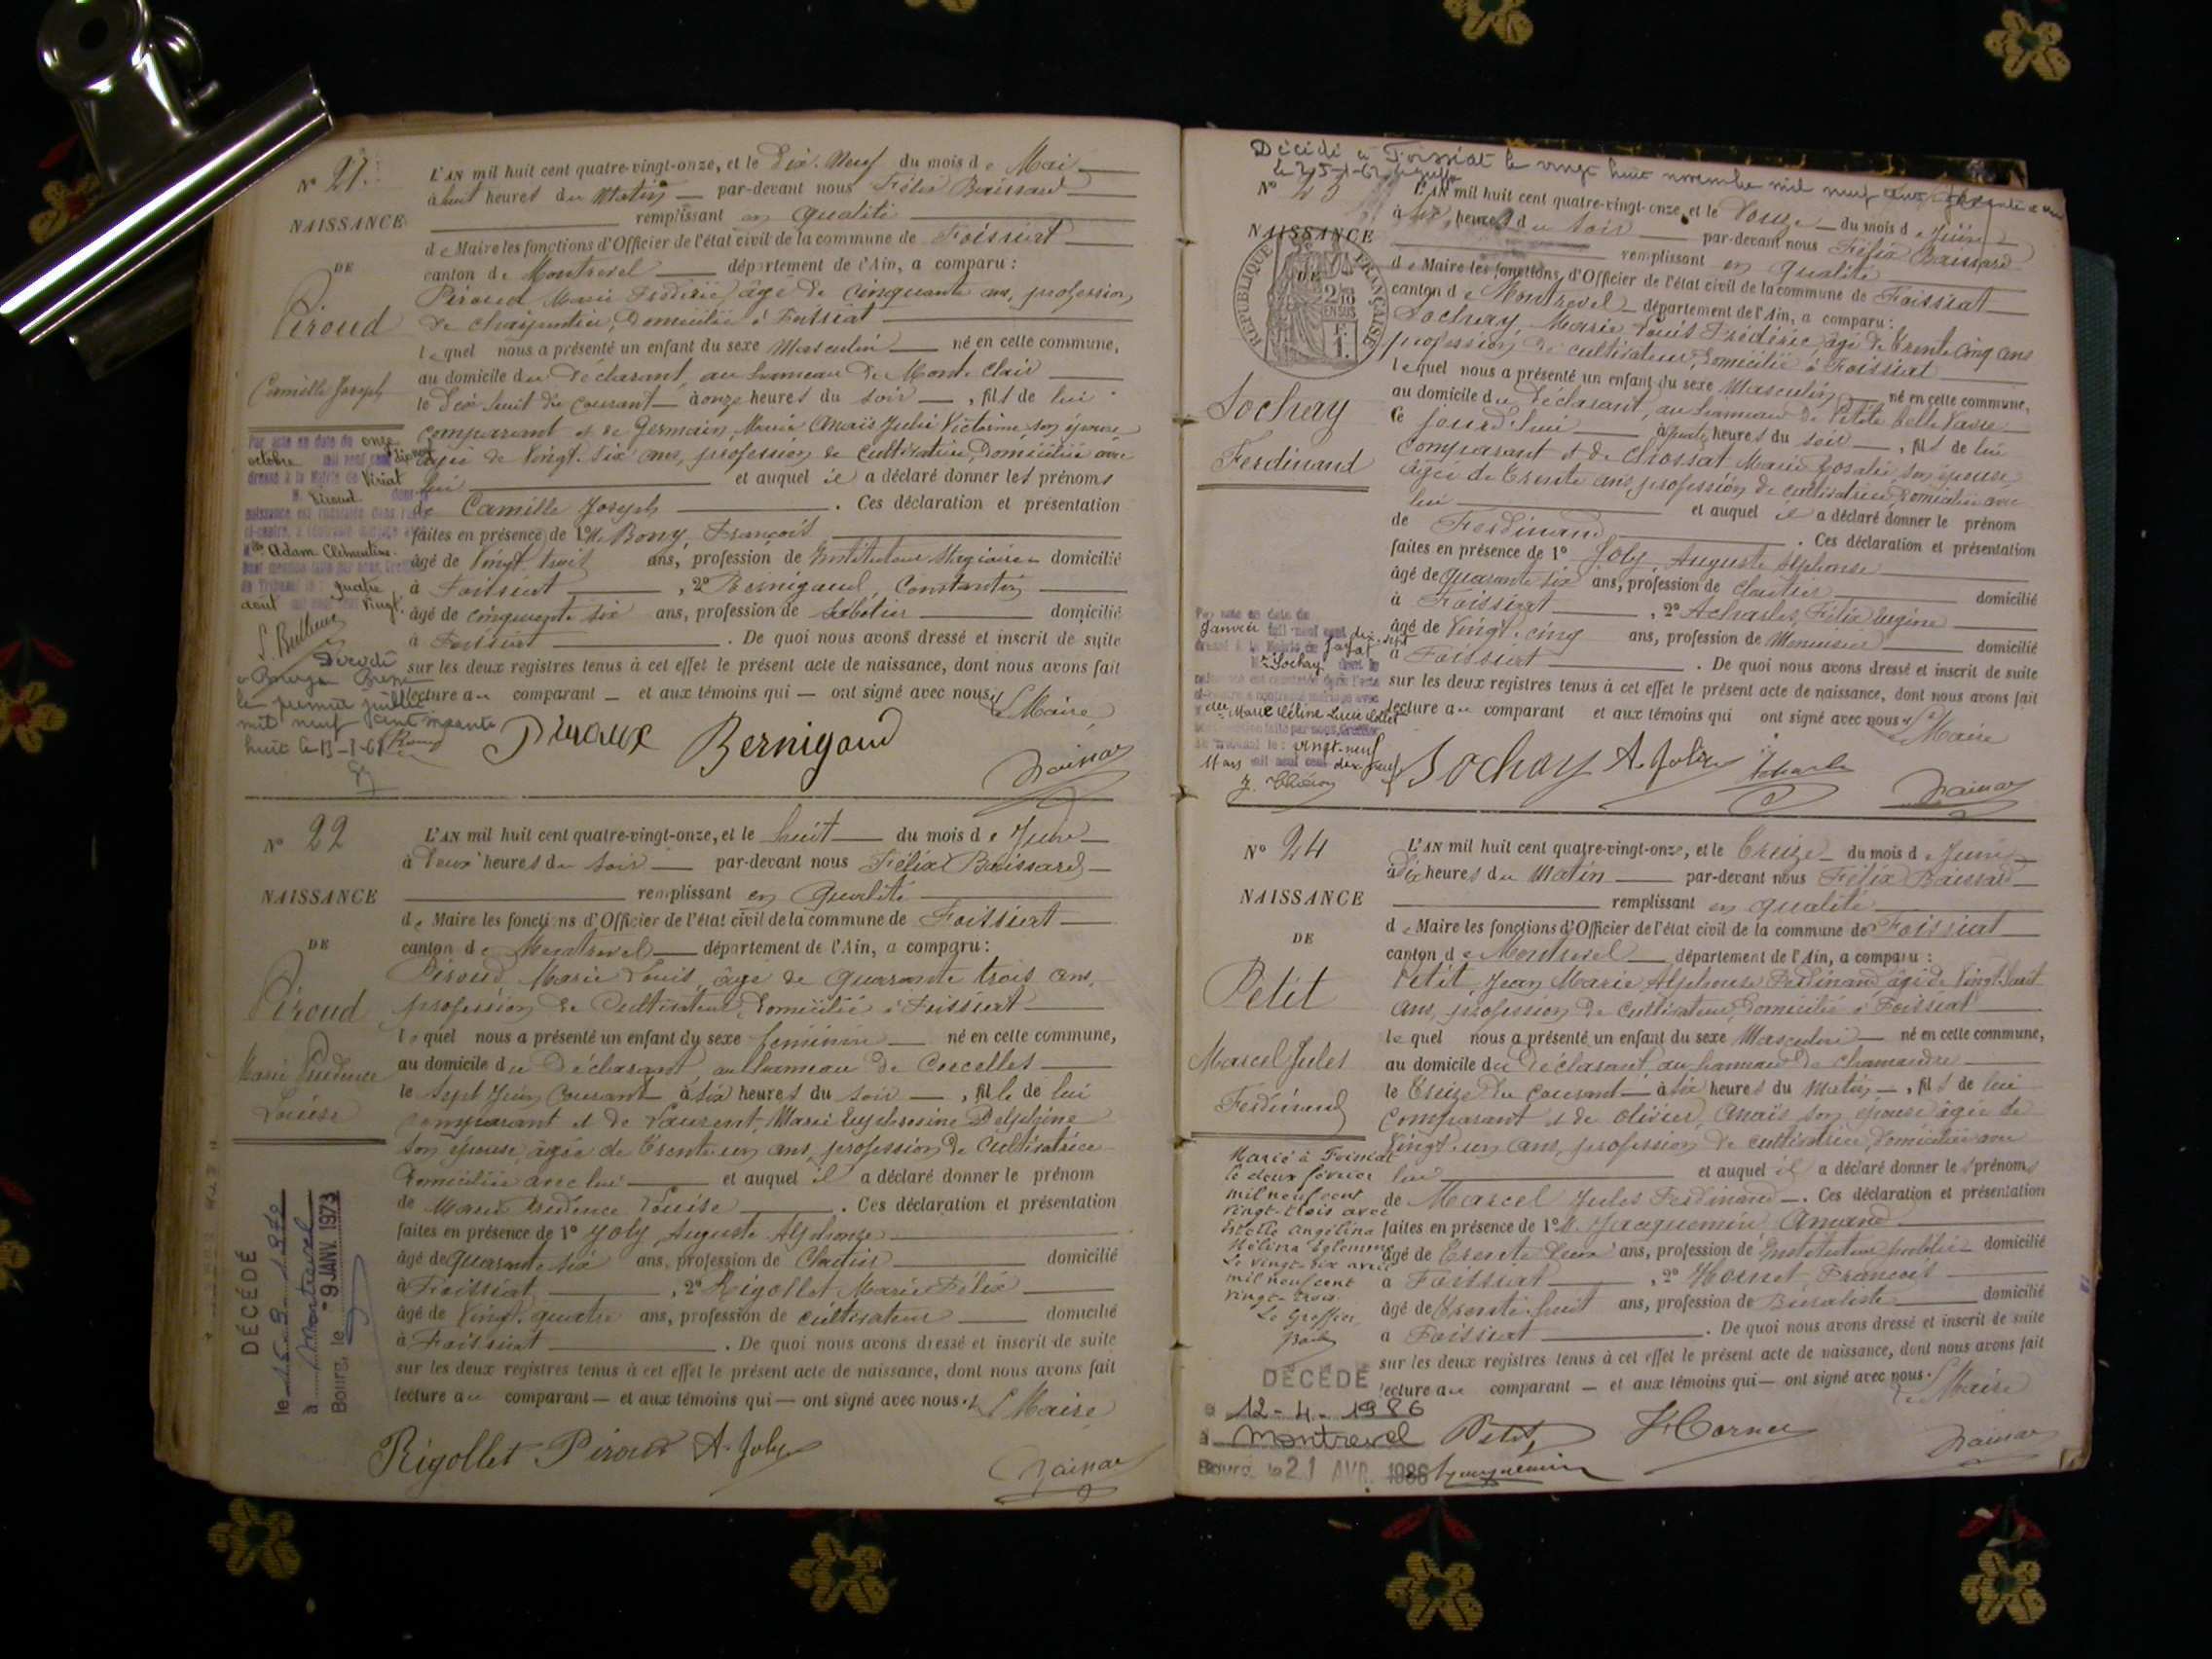 N° 21.
NAISSANCE
DE
Piroud
Camille Joseph
L'AN mil huit cent quatre-vingt-onze, et le Dix-Neuf du mois de Mai
à huit heures du Matin par-devant nous Félix Baissard
remplissant en qualité
de Maire les fonctions d'Officier de l'état civil de la commune de Foissiat
canton de Montrevel département de l'Ain, a comparu :
Piroud Marie Frédéric âgé de cinquante ans, profession
de charpentier, Domicilié à Foissiat
lequel nous a présenté un enfant du sexe Masculin né en cette commune,
au domicile du déclarant, au hameau de Mont Clair
le Dix huit du courant à onze heures du soir, fils de lui
comparant et de Germain, Marie Anaïs Julie Victorine son épouse
âgée de Vingt-Six ans, profession de cultivatrice, Domiciliée avec
lui et auquel il a déclaré donner les prénoms
de Camille Joseph. Ces déclaration et présentation
faites en présence de 1° M. Bony, François
âgé de Vingt trois ans, profession de Instituteur Stagiaire domicilié
à Foissiat, 2° Bernigaud, Constantin
âgé de cinquante six ans, profession de Sabotier domicilié
à Foissiat. De quoi nous avons dressé et inscrit de suite
sur les deux registres tenus à cet effet le présent acte de naissance, dont nous avons fait
lecture au comparant et aux témoins qui ont signé avec nous
Le Maire
Bernigaud
Par acte en date du onze
octobre mil neuf cent dix-neuf
dressé à la Mairie de Viriat
M. Piroud dont la
naissance est constatée dans l'acte
ci-contre, a contracté mariage avec
Mlle Adam Clémentine.
quatre
août vingt.
Décédé
à Bourg en Bresse
le premier juillet
mil neuf cent soixante
huit
N° 22
NAISSANCE
DE
Piroud
Marie Prudence
Louise
L'AN mil huit cent quatre-vingt-onze, et le huit du mois de Juin
à Deux heures du soir par-devant nous Félix Baissard
remplissant en qualité
de Maire les fonctions d'Officier de l'état civil de la commune de Foissiat
canton de Montrevel département de l'Ain, a comparu :
Piroud, Marie Louis, âgé de quarante trois ans,
profession de Cultivateur, Domicilié à Foissiat
lequel nous a présenté un enfant du sexe féminin né en cette commune,
au domicile du Déclarant, au hameau de Corcelles
le Sept Juin Courant à Six heures du soir, fille de lui
comparant et de Laurent, Marie Euphrosine Delphine
son épouse, âgée de Trente un ans, profession de Cultivatrice
Domiciliée avec lui et auquel il a déclaré donner le prénom
de Marie Prudence Louise. Ces déclaration et présentation
faites en présence de 1° Joly, Auguste Alphonse
âgé de quarante six ans, profession de Cloutier domicilié
à Foissiat, 2° Rigollet Marie Félix
âgé de Vingt quatre ans, profession de cultivateur domicilié
à Foissiat. De quoi nous avons dressé et inscrit de suite
sur les deux registres tenus à cet effet le présent acte de naissance, dont nous avons fait
lecture au comparant et aux témoins qui ont signé avec nous.
Le Maire
Rigollet Piroud A. Joly
DÉCÉDÉ
à Montrevel
Bourg, le - 9 JANV. 1973
Décédé à Foissiat le vingt huit novembre mil neuf cent soixante
N° 23
NAISSANCE
DE
RÉPUBLIQUE FRANÇAISE
Sochay
Ferdinand
L'AN mil huit cent quatre-vingt-onze, et le Douze du mois de Juin
à Six heures du soir par-devant nous Félix Baissard
remplissant en qualité
de Maire les fonctions d'Officier de l'état civil de la commune de Foissiat
canton de Montrevel département de l'Ain, a comparu :
Sochay, Marie Louis Frédéric âgé de Trente Cinq ans
profession de cultivateur, Domicilié à Foissiat
lequel nous a présenté un enfant du sexe Masculin né en cette commune,
au domicile du déclarant, au hameau de Petite belle Vavre
Ce jourd'hui à quatre heures du soir, fils de lui
comparant et de Chossat Marie Rosalie, son épouse
âgée de Trente ans profession de cultivatrice, Domiciliée avec
lui et auquel il a déclaré donner le prénom
de Ferdinand. Ces déclaration et présentation
faites en présence de 1° Joly, Auguste Alphonse
âgé de quarante six ans, profession de cloutier domicilié
à Foissiat, 2° Acharles, Félix Eugène
âgé de Vingt-cinq ans, profession de Menuisier domicilié
à Foissiat. De quoi nous avons dressé et inscrit de suite
sur les deux registres tenus à cet effet le présent acte de naissance, dont nous avons fait
lecture au comparant et aux témoins qui ont signé avec nous
Le Maire
Sochay A. Joly
Par acte en date du
Janvier mil neuf cent dix-sept
dressé à la Mairie de Jayat
Mr Sochay dont la
naissance est constatée dans l'acte
ci-contre a contracté mariage avec
Marie Céline Lucie Collet
vingt-neuf
Mars mil neuf cent dix-sept
N° 24
NAISSANCE
DE
Petit
Marcel Jules
Ferdinand
L'AN mil huit cent quatre-vingt-onze, et le Treize du mois de Juin
à Dix heures du Matin par-devant nous Félix Baissard
remplissant en qualité
de Maire les fonctions d'Officier de l'état civil de la commune de Foissiat
canton de Montrevel département de l'Ain, a comparu :
Petit, Jean Marie Alphonse Ferdinand âgé de Vingt-huit
ans, profession de cultivateur, Domicilié à Foissiat
lequel nous a présenté un enfant du sexe Masculin né en cette commune,
au domicile du déclarant, au hameau de Chamandre
le Treize du courant à Six heures du Matin, fils de lui
comparant et de Olivier, Anaïs son épouse âgée de
Vingt-un ans, profession de cultivatrice, domiciliée avec
lui et auquel il a déclaré donner les prénoms
de Marcel Jules Ferdinand. Ces déclaration et présentation
faites en présence de 1° M. Jacquemin Amand
âgé de Trente Deux ans, profession de Instituteur public domicilié
à Foissiat, 2° Hornet François
âgé de Trente-huit ans, profession de Buraliste domicilié
à Foissiat. De quoi nous avons dressé et inscrit de suite
sur les deux registres tenus à cet effet le présent acte de naissance, dont nous avons fait
lecture au comparant et aux témoins qui ont signé avec nous.
Le Maire
Petit
Marié à Foissiat
le deux février
mil neuf cent
vingt-trois avec
Estelle Angélina
Le vingt-six avril
mil neuf cent
vingt-trois.
Le Greffier
DÉCÉDÉ
12-4-1986
à Montrevel
Bourg, le 21 AVR. 1986